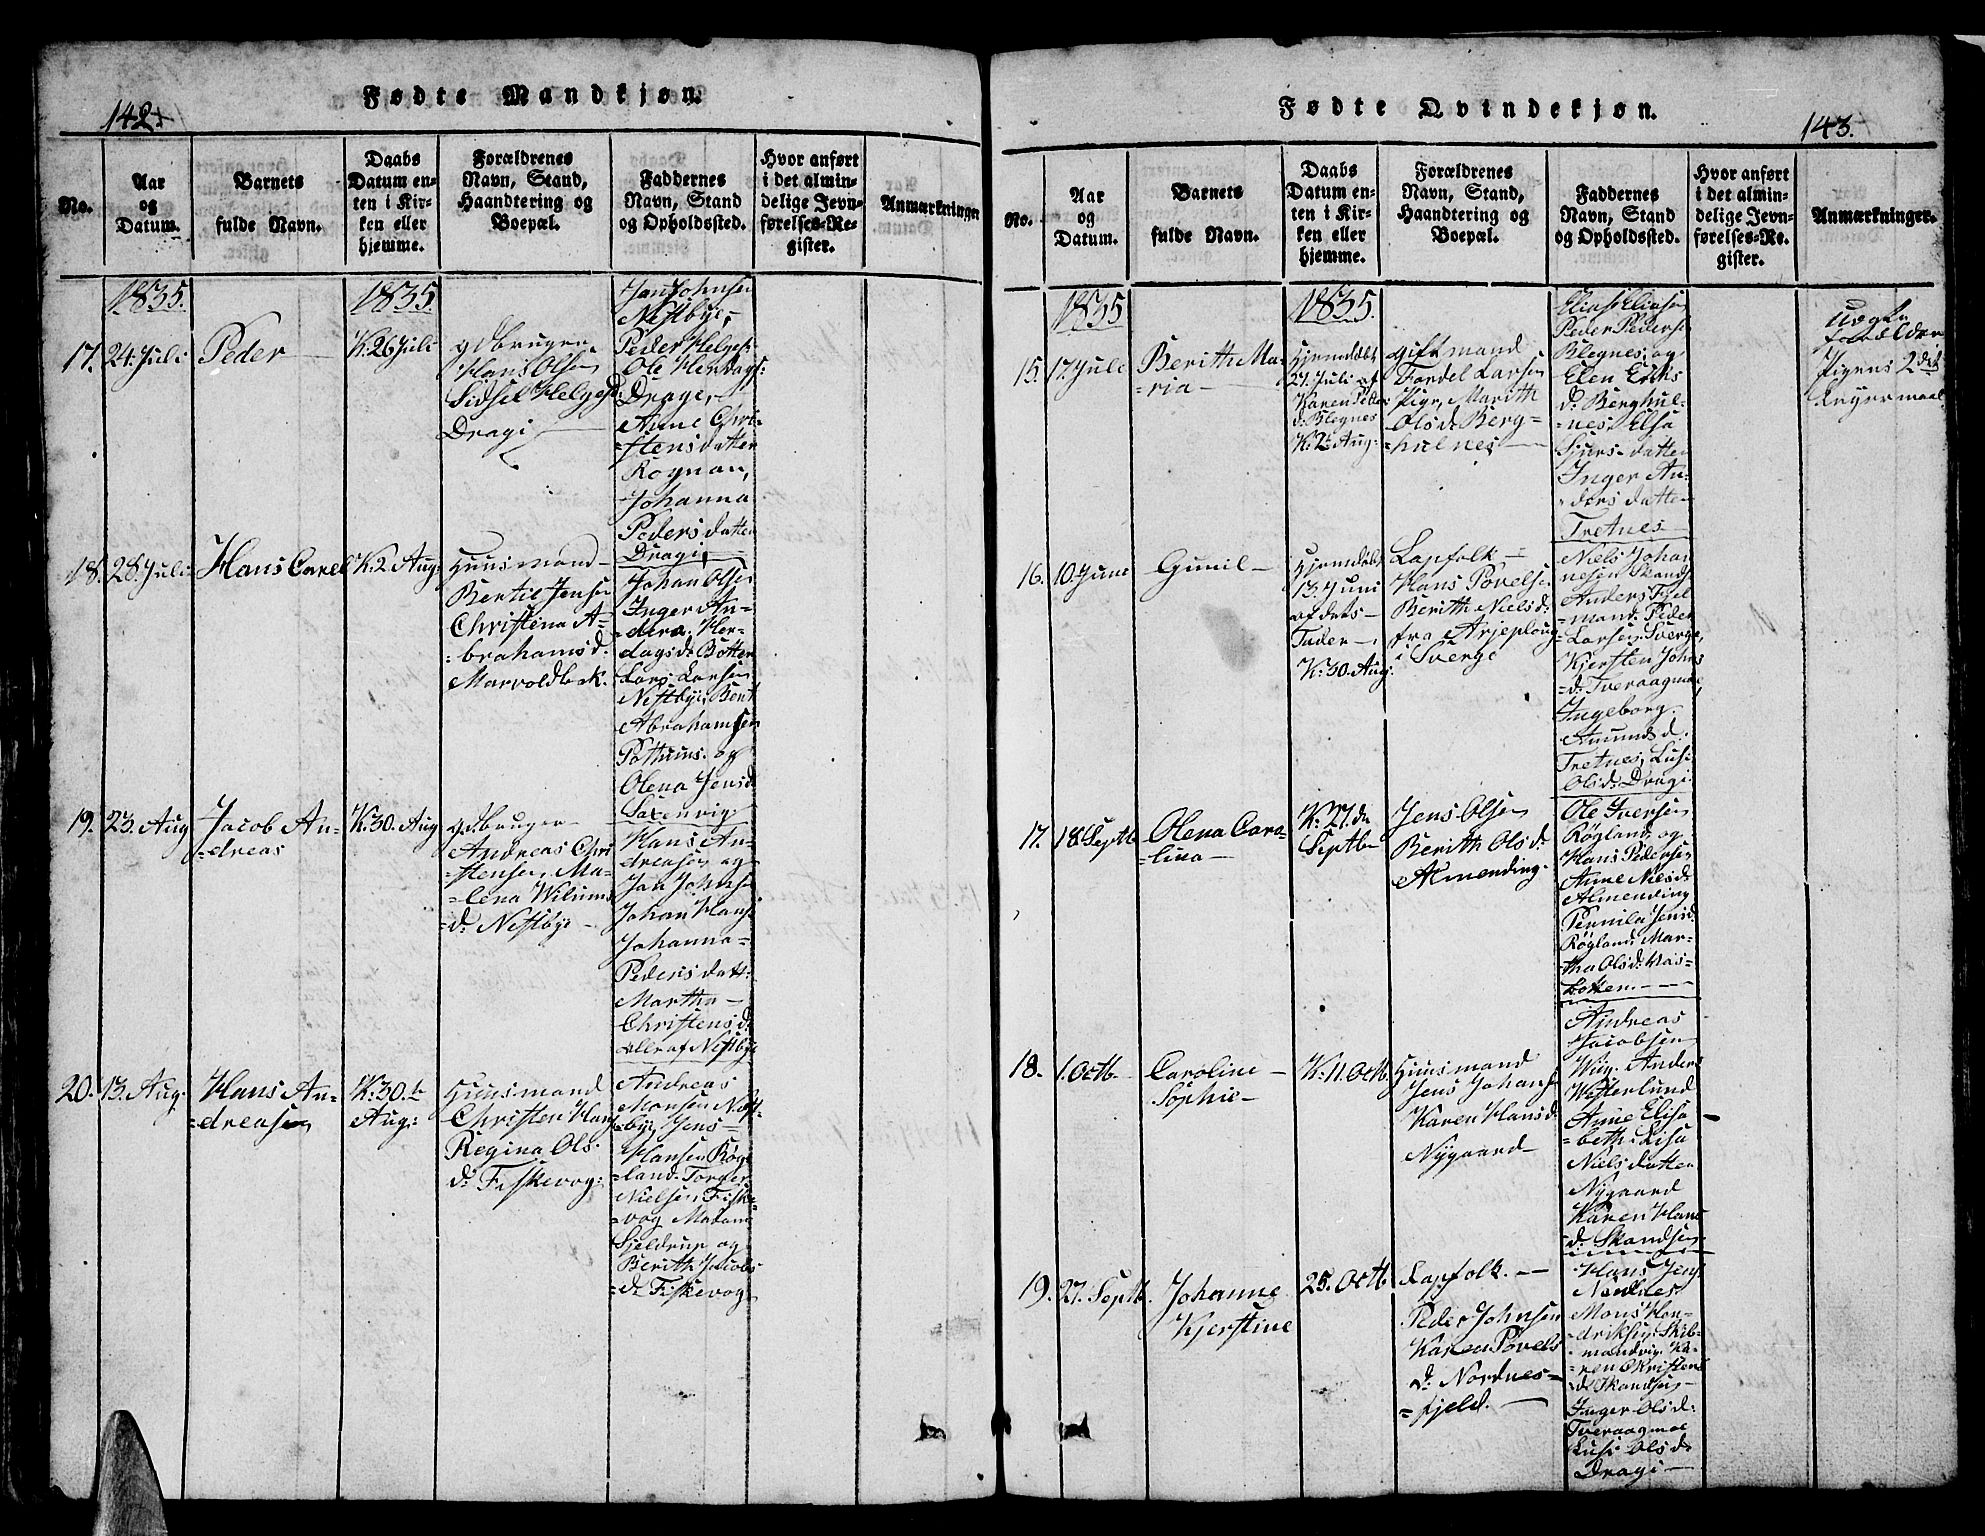 142
Fødte Mandkjøn.
No.
Aar
og
Datum.
Barnets
fulde Navn.
Daabs
Datum en-
ten i Kir-
ken eller
hjemme.
Forældrenes
Navn, Stand,
Haandtering og
Boepæl.
Faddernes
Navn, Stand
og Opholdssted.
Hvor anført
i det almin-
delige Jevn-
førelses-Re-
gister.
Anmærkninger
1835.
1835.
17.
24. Juli
Peder
K: 26 Juli
gdbruger
Hans Olsen
Sidsel Helgesd:
Dragi
Jan Johnsen
Nestbye,
Peder Helges:
Ole Herdags:
Drage,
Anne Chri-
stensdatter
Rognan,
Johanna
Pedersdatter
Dragi,
18.
28. Juli
Hans Carel
K: 2 Aug:
Huusmand
Bertil Jensen
Christena A-
=brahamsd.
Marvoldbek.
Johan Olsen
Inger An-
=dersd. Her-
dagsd: Botten
Lars Larsen
Nestbye, Bent
Abrahamsen
Pothuus. og
Olena Jensd:
Saxenvig
19.
23. Aug
Jacob An-
=dreas
K: 30. Aug
gdbruger
Andreas Chri
=stensen, Ma-
=lena Wilums
=d: Nestbye
Hans An-
dreasen og
Jan Johns:
Johan Hans:
Johanna
Pedersdatt:
Martha
Christensd:
alle af Nestbye
20.
13. Aug.
Hans An-
=dreasen
K: 30.te
Aug:
Huusmand
Christen Hans
Regina Ols
d: Fiskevog:
Andreas
Monsen Næst-
=bye, Jens
Hansen Røg-
land. Torger
Nielsen Fiske-
=vog Madam
Sjeldrup og
Berith Jacobs
=d: Fiskevog
Fødte Qvindekjøn.
143.
No.
Aar
og
Datum.
Barnets
fulde Navn.
Daabs
Datum en-
ten i Kir-
ken eller
hjemme.
Forældrenes
Navn, Stand,
Haandtering og
Boepæl.
Faddernes
Navn, Stand
og Opholdssted.
Hvor anført
i det almin-
delige Jevn-
førelses-Re-
gister.
Anmærkninger.
1835
1835.
15.
17. Juli
Berith Ma-
=ria
Hjemdøbt
21. Juli af
Karen Peder
d: Blegnes
K: 2t Aug:
gift mand
Fordel Larsen
Pige, Marith
Olsd: Berg-
=hulnes,
Elias Eliasen
Peder Pedersen
Blegnes, og
Elen Eriks
d: Berghul-
=nes, Elsa
Sjursdatter
Inger An-
=dersdatter
Tretnes
Uægte
forældre
Pigens 2det
Leyermaal
16.
10. Juni
Gunil
Hjemdøbt
13. Juni
af dets
Fader
K: 30. Aug.
Lapfolk
Hans Povelsen
Berith Nielsd:
fra Arjeploug
i Sverge
Niels Johan
nesen Skands
Anders Fjel
mand. Peder
Larsen Sverge,
Kjersten Johns
=d: Tveraagmoe,
Ingeborg
Amundsd.
Tretnes, Lusi
Olsd: Dragi
17.
18. Septb
Olena Caro-
=lina
K: 27. de
Septb
Jens Olsen
Berith Olsd:
Almending.
Ole Iversen
Røgland og
Hans Pedersen
Anne Nielsd:
Almending
Pernila Jensd:
Røgland, Mar-
=tha Olsd: Vas-
=botten.
18.
1. Octb
Caroline
Sophie
K: 11. Octb.
Huusmand
Jens Johans:
Karen Hansd:
Nygaard
Andreas
Jacobsen
Wiig. Anders
Westerlund
Anne Elisa
beth: Lisa
Nielsdatter
Nygaard
Karen Hans
d: Skandsen
19.
27. Septb.
Johanne
Kjerstine
25. Octb
Lapfolk.
Peder Johnsen
Karen Povels
d: Nordnes-
=fjeld.
Hans Jens:
Nordnes
Mons Hen-
=driksen, Skib-
=mandvig. Ka-
=ren Christens
d: Skandsen
Inger Olsd:
Tveraagmoe
Lusi Olsd:
Dragi